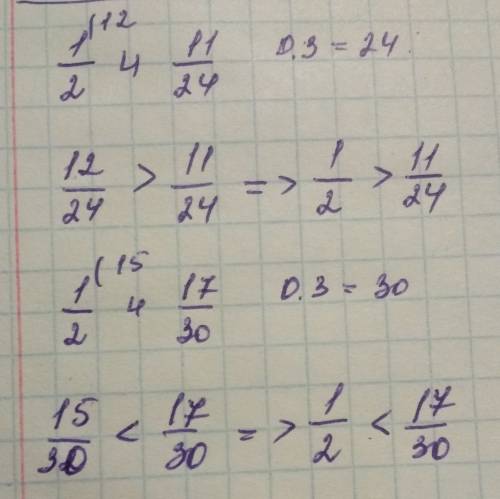 1/2 (12 и 11/24 О.З = 24.
12/24 > 11/24 => 1/2 > 11/24
1/2 (15 и 17/30 О.З = 30
15/30 < 17/30 => 1/2 < 17/30